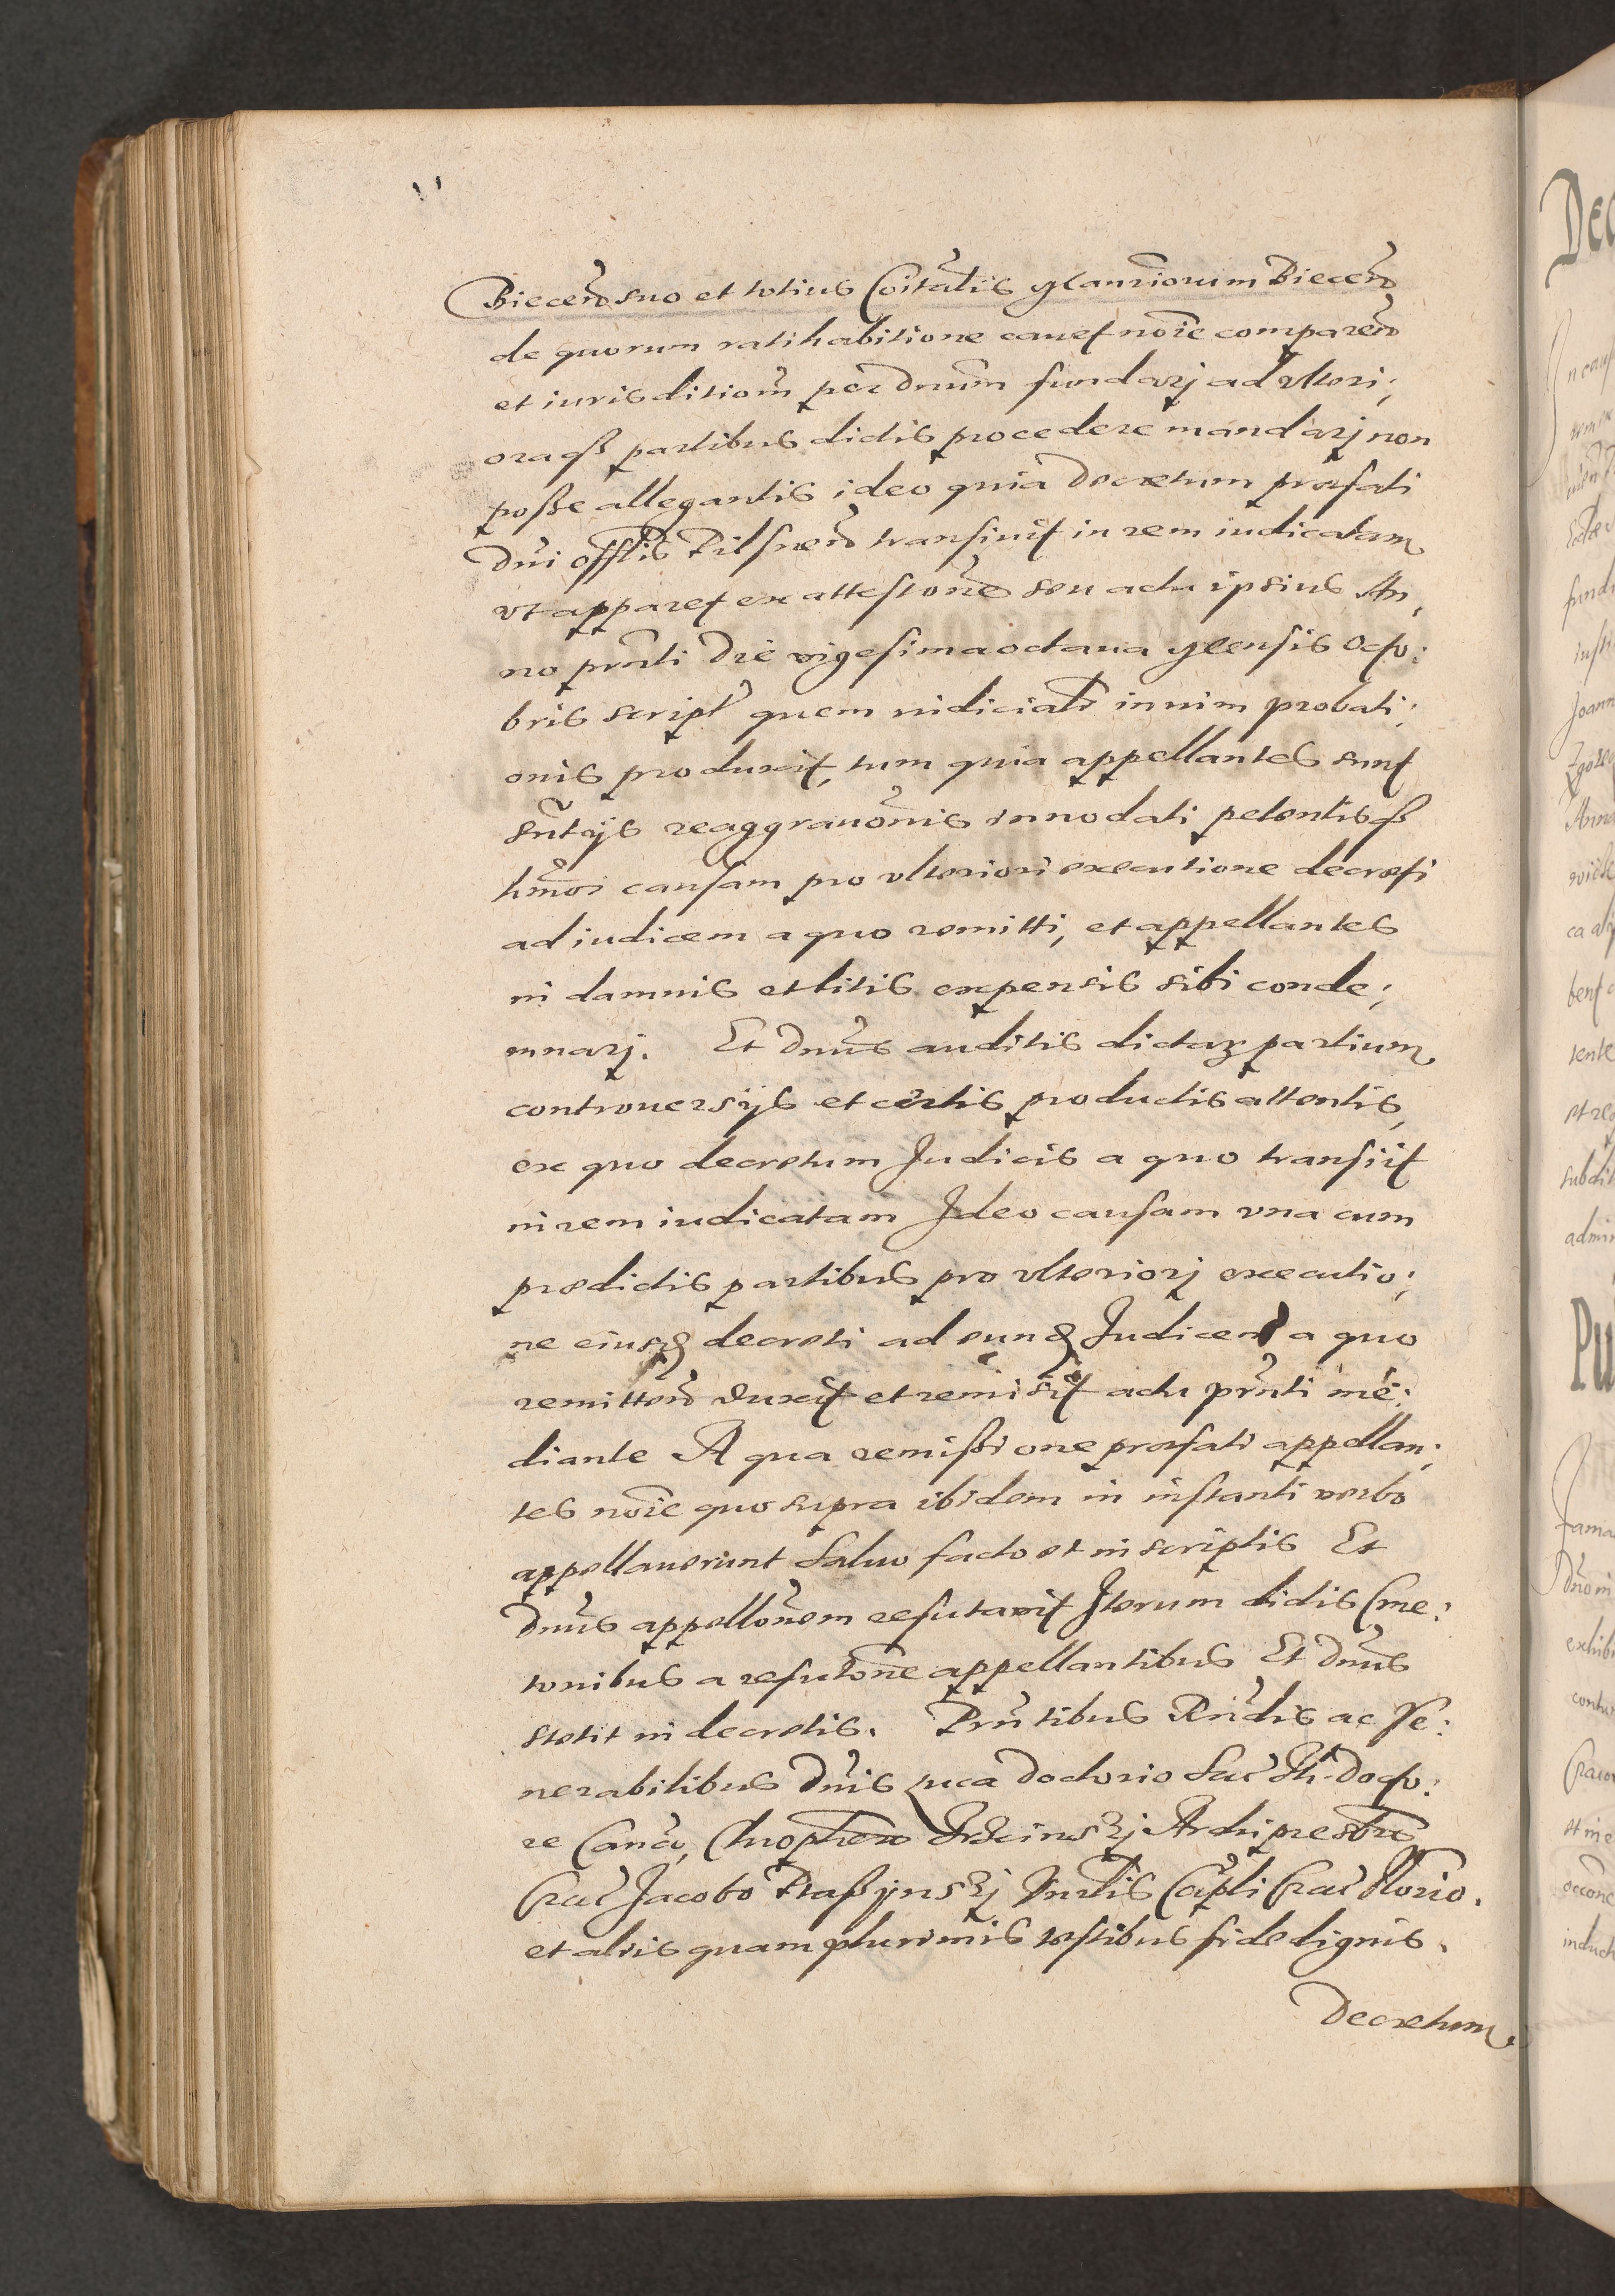 Biecen suo et totius Coitatis glanorium Biecen
de quorum ratihabitione cauet noie comparen
et iurisditiom per Dnum fundarj ad vlteri;
oraq3 partibus dictis procedere mandarj non
posse allegantis ideo quia Decretum præfati
Dni offlis Pilsnen transiuit in rem iudicatam
vt apparet ex attestone seu actu ipsius An,
no prnti Die vigesimaoctaua Octo:
bris script quem iudiciali in uim probati;
onis produxit, tum quia appellantes sunt
sntijs reaggrauonis innodati petentisq3
hmoi causam pro vlteriori executione decreti
ad iudicem a quo remitti, et appellantes
in damnis et litis expensis sibi conde;
mnarj. Et Dnus auditis dictaR partium
controuersijs et certis productis attentis,
ex quo decretum Judicis a quo transiit
in rem iudicatam Ideo causam vna cum
prædictis partibus pro vlteriorj executio;
ne eiusd decreti ad eund Judicem a quo
remitten duxit et remisit actu prnti me:
diante A qua remissione præfati appellan;
tes noie quo supra ibidem in instanti verbo
appellauerunt Saluo facto et in scriptis Et
Dnus appellonem refutauit Iterum dictis Cme:
tonibus a refutone appellantibus Et Dnus
stetit in decretis. Prntibus Rndis ac Ve:
nerabilibus Dnis Luca Doctorio Sac Th. Docto:
re Canco, Archipresbro
Crac Jacobo Capli Crac
et aliis quam plurimis testibus fide dignis.
Decretum